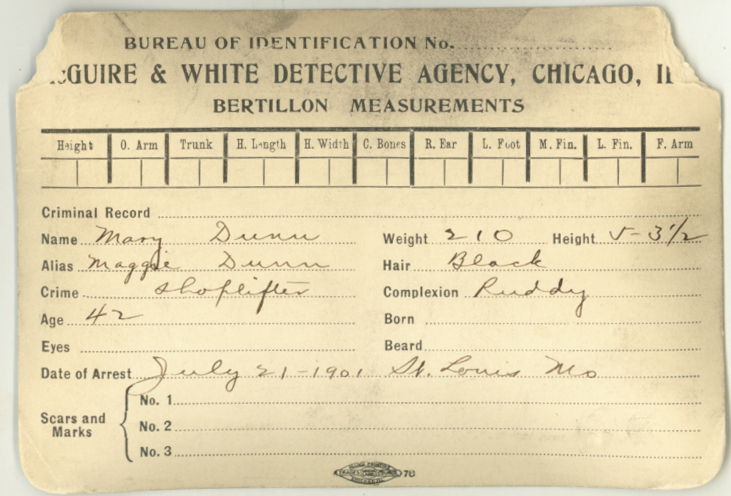 BUREAU OF IDENTIFICATION No.
& WHITE DETECTIVE AGENCY, CHICAGO,
BERTILLON MEASUREMENTS
Height O. Arm Trunk H. Length H. Width C. Bones R. Ear L. Foot M. Fin. L. Fin. F. Arm
Criminal Record
Name Mary Dunn Weight 210 Height 5-3 1/2
Alias Maggie Dunn Hair Black
Crime Shoplifter Complexion Ruddy
Age 42 Born
Eyes Beard
Date of Arrest July 21-1901 St. Louis Mo
Scars and Marks
No. 1
No. 2
No. 3
78